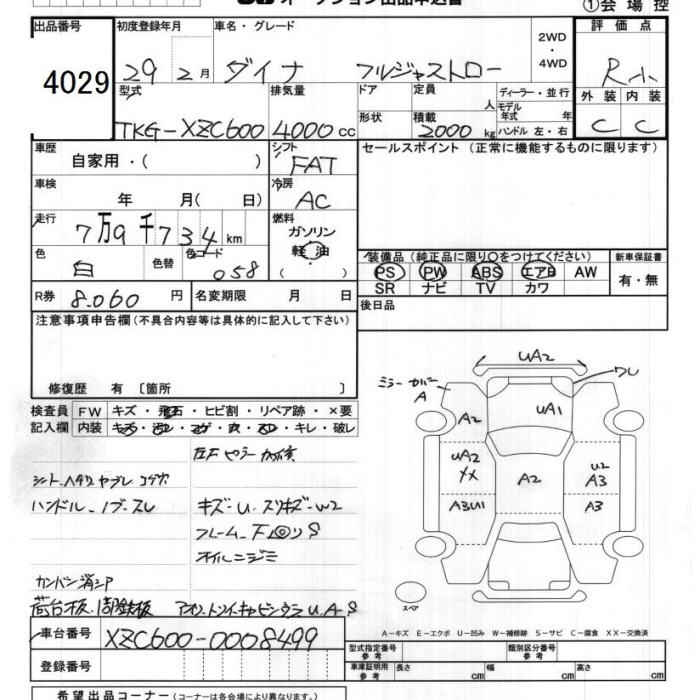 オークション出品申込書
①会場控
出品番号 初度登録年月 車名・グレード 評価点
4029 29 2月 ダイナ フルジャストロー 2WD ・ 4WD R小
型式 排気量 ドア 定員 人 ディーラー・並行 外装 内装
TKG-XZC600 4000cc 形状 積載 2000kg モデル年式 年 ハンドル 左・右 C C
車歴 自家用・( ) シフト FAT セールスポイント (正常に機能するものに限ります)
車検 年 月( 日) 冷房 AC
走行 7万9千734km 燃料 ガソリン 軽油 ( )
色 白 色替 色コード 058 装備品(純正品に限り○をつけてください) 新車保証書
PS PW ABS エアB AW 有・無
SR ナビ TV カワ
R券 8.060円 名変期限 月 日 後日品
注意事項申告欄(不具合内容等は具体的に記入して下さい)
修復歴 有〔箇所 〕
検査員 FW キズ・飛石・ヒビ割・リペア跡・×要
記入欄 内装 キズ・汚レ・コゲ・穴・スレ・キレ・破レ
UA2
ワレ
ミラーカバー A
A2 UA1
UA2 XX A2 U2 A3
A3U1 A3
スペア
シートヘタリ ヤブレ コゲ穴
ハンドル、ノブ-スレ キズ-U、スリキズ-W2
オイルニジミ
カンバン消シP
荷台板、
A-キズ E-エクボ U-凹み W-補修跡 S-サビ C-腐食 XX-交換済
車台番号 XZC600-0008499
登録番号
型式指定番号 参考 類別区分番号 参考
車庫証明用 参考 長さ cm 幅 cm 高さ cm
希望出品コーナー(コーナーは各会場により異なります。)